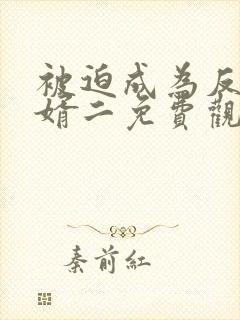 被迫成為反
婿二免費觀
秦前紅